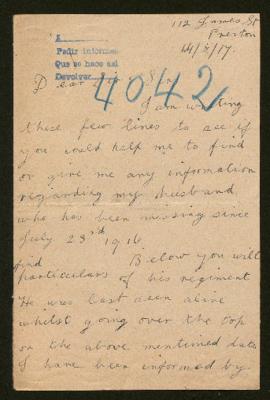 112 James St
Preston
14/5/17.
A
Pedir informes
Que se hace así
Devolver
4042
Dear Sir
I am writing
these few lines to see if
you could half me to find
or give me any information
regarding my husband
who has been missing since
July 23rd 1916
Below you will
find
particulars of his regiment
He was last seen alive
whilst going over the top
on the above mentioned date
I have been informed by